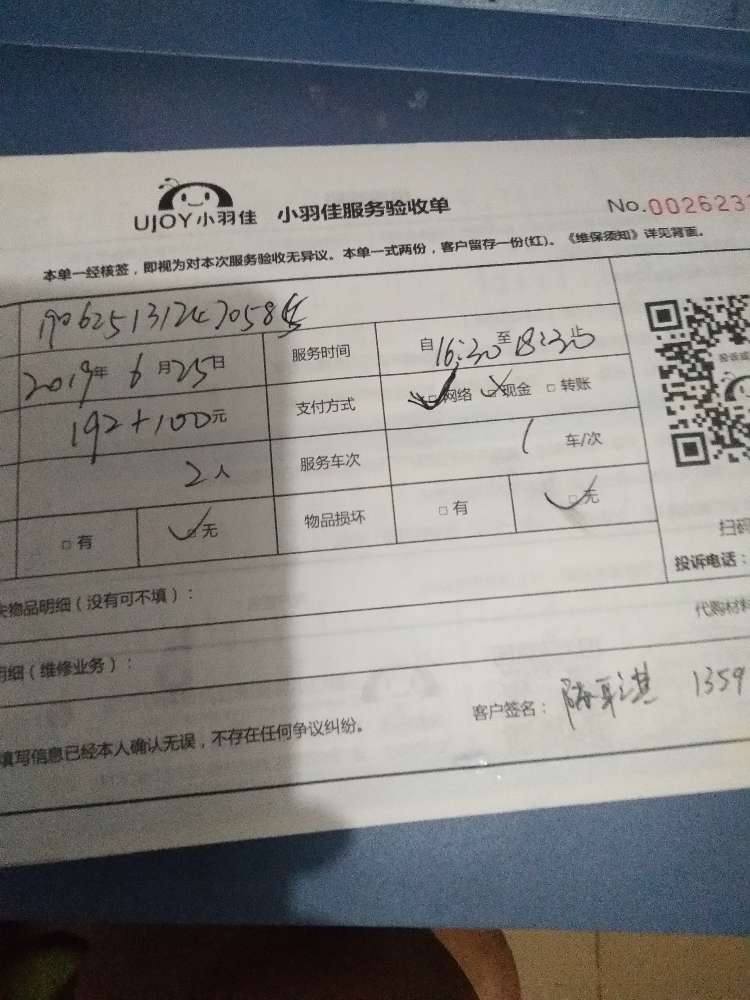 UJOY小羽佳 小羽佳服务验收单 No.002623
本单一经核签，即视为对本次服务验收无异议。本单一式两份，客户留存一份(红)。《维保须知》详见背面。
2019年 6月25日 服务时间 自16:30至18:30止
192+100元 支付方式 网络 现金 □ 转账
2人 服务车次 1 车/次
□ 有 无 物品损坏 □ 有 □ 无
物品明细（没有可不填）：
扫码
投诉电话：
明细（维修业务）：
代购材料
填写信息已经本人确认无误，不存在任何争议纠纷。
客户签名： 1359